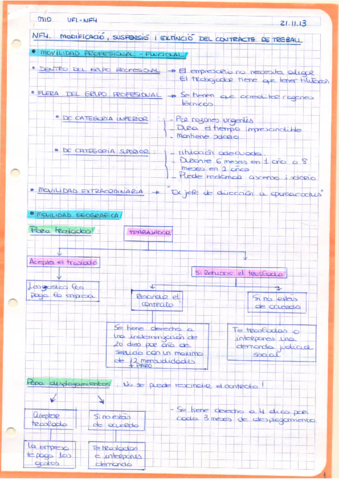 UF1-NF4
21.11.13
NF4. MODIFICACIÓ, SUSPENSIÓ I EXTINCIÓ DEL CONTRACTE DE TREBALL
MOVILIDAD PROFESIONAL - FUNCIONAL
DENTRO DEL GRUPO PROFESIONAL → El empresario no necesita alegar
El trabajador tiene que tener titulación
FUERA DEL GRUPO PROFESIONAL → Se tienen que acreditar razones
técnicas
DE CATEGORIA INFERIOR → Por razones urgentes
Dura el tiempo imprescindible
Mantiene salario
DE CATEGORIA SUPERIOR → titulación adecuada
Durante 6 meses en 1 año o 8
meses en 2 años
Puede reclamar ascenso i salario
MOVILIDAD EXTRAORDINARIA → "De jefe de dirección a
MOVILIDAD GEOGRÁFICA
Para traslados
TRABAJADOR
Acepta el traslado
Si Rehusa el traslado
Los gastos los
paga la empresa
Rescindir el
contrato
Si no estás
de acuerdo
Se tiene derecho a
una indemnización de
20 días por año de
servicio con un máximo
de 12 mensualidades
Te trasladas e
interpones una
demanda judicial
social
Para desplazamientos - No se puede rescindir el contrato!
Aceptas
traslado
Si no estás
de acuerdo
- Se tiene derecho a 4 días por
cada 3 meses de desplazamiento
La empresa
te paga los
gastos
Te trasladas
e interpones
demanda
1